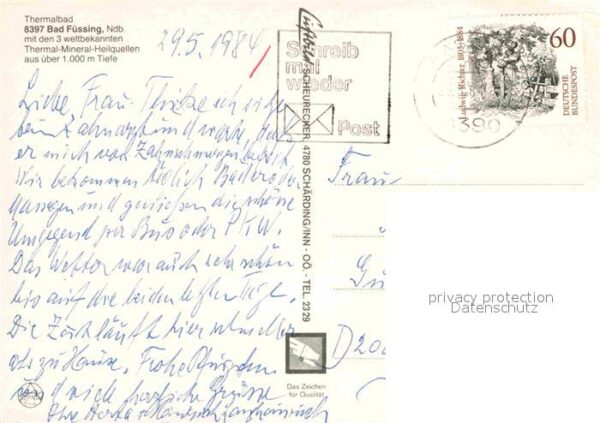 Thermalbad
8397 Bad Füssing, Ndb.
mit den 3 weltbekannten
Thermal-Mineral-Heilquellen
aus über 1.000 m Tiefe
29.5.1984
Liebe Frau
beim Zahnarzt und warte, daß
er mich von Zahnschmerzen befreit.
Wir bekommen täglich Bäder oder
Massagen und genießen die schöne
Umgegend per Bus oder PKW.
Das Wetter war auch sehr schön
bis auf die beiden letzten Tage.
Die Zeit läuft hier schneller
als zu Hause. Frohe Pfingsten
und viele herzliche Grüsse
Ihre
Luftbild SCHEURECKER, 4780 SCHÄRDING/INN - OÖ. - TEL. 2329
Schreib
mal
wieder
Post
Ludwig Richter 1803-1884
60
DEUTSCHE
BUNDESPOST
8390
Frau
D 20
Das Zeichen
für Qualität
privacy protection
Datenschutz